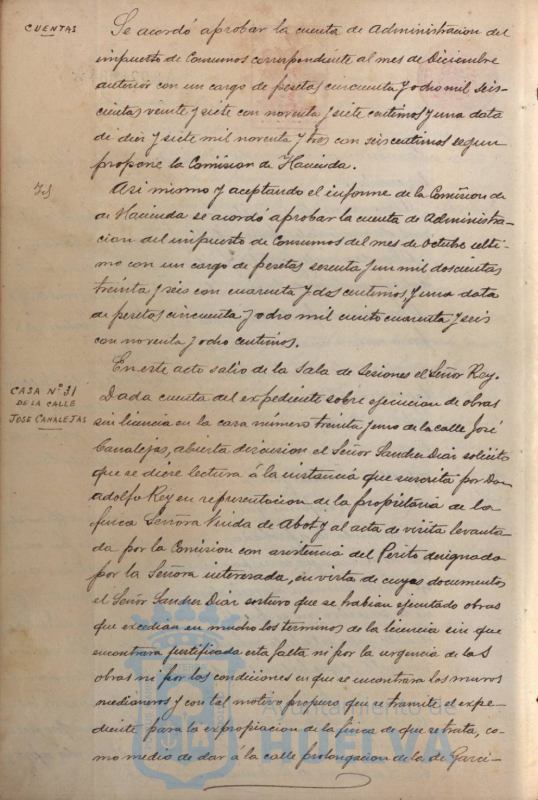 CUENTAS
Se acordó aprobar la cuenta de Administracion del
impuesto de Consumos correspondiente al mes de Diciembre
anterior con un cargo de pesetas cincuenta y ocho mil seis-
cientas veinte y siete con noventa y siete centimos y una data
de diez y siete mil noventa y tres con seis centimos segun
propone la Comision de Hacienda.
Id
Asi mismo y aceptando el informe de la Comision de
de Hacienda se acordó aprobar la cuenta de Administra-
cion del impuesto de Consumos del mes de Octubre ulti-
mo con un cargo de pesetas sesenta y un mil doscientas
treinta y seis con cuarenta y dos centimos, y una data
de pesetas cincuenta y ocho mil ciento cuarenta y seis
con noventa y ocho centimos.
En este acto salio de la Sala de Sesiones el Señor Rey.
CASA Nº 31
DE LA CALLE
JOSE CANALEJAS
Dada cuenta del expediente sobre ejecucion de obras
sin licencia en la casa número treinta y uno de la calle José
Canalejas, abierta discusion el Señor Sanchez Diaz solicitó
que se diese lectura á la instancia que suscrita por Don
Adolfo Rey en representacion de la propietaria de la
finca Señora Viuda de Abot y al acta de visita levanta-
da por la Comision con asistencia del Perito designado
por la Señora interesada, en vista de cuyos documentos
el Señor Sanchez Diaz sostuvo que se habian ejecutado obras
que excedian en mucho los terminos de la licencia sin que
encontrara justificada esta falta ni por la urgencia de las
obras ni por las condiciones en que se encontrara los muros
medianeros y con tal motivo propuso que se tramite el expe-
diente para la expropiacion de la finca de que se trata, co-
mo medio de dar á la calle prolongacion de la de Garci-
Ayuntamiento de
HUELVA